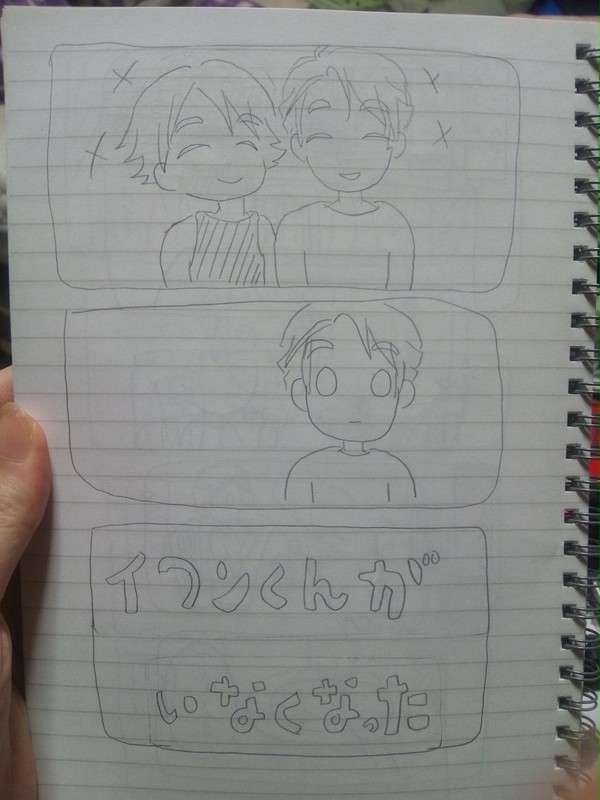 イワンくんが
いなくなった